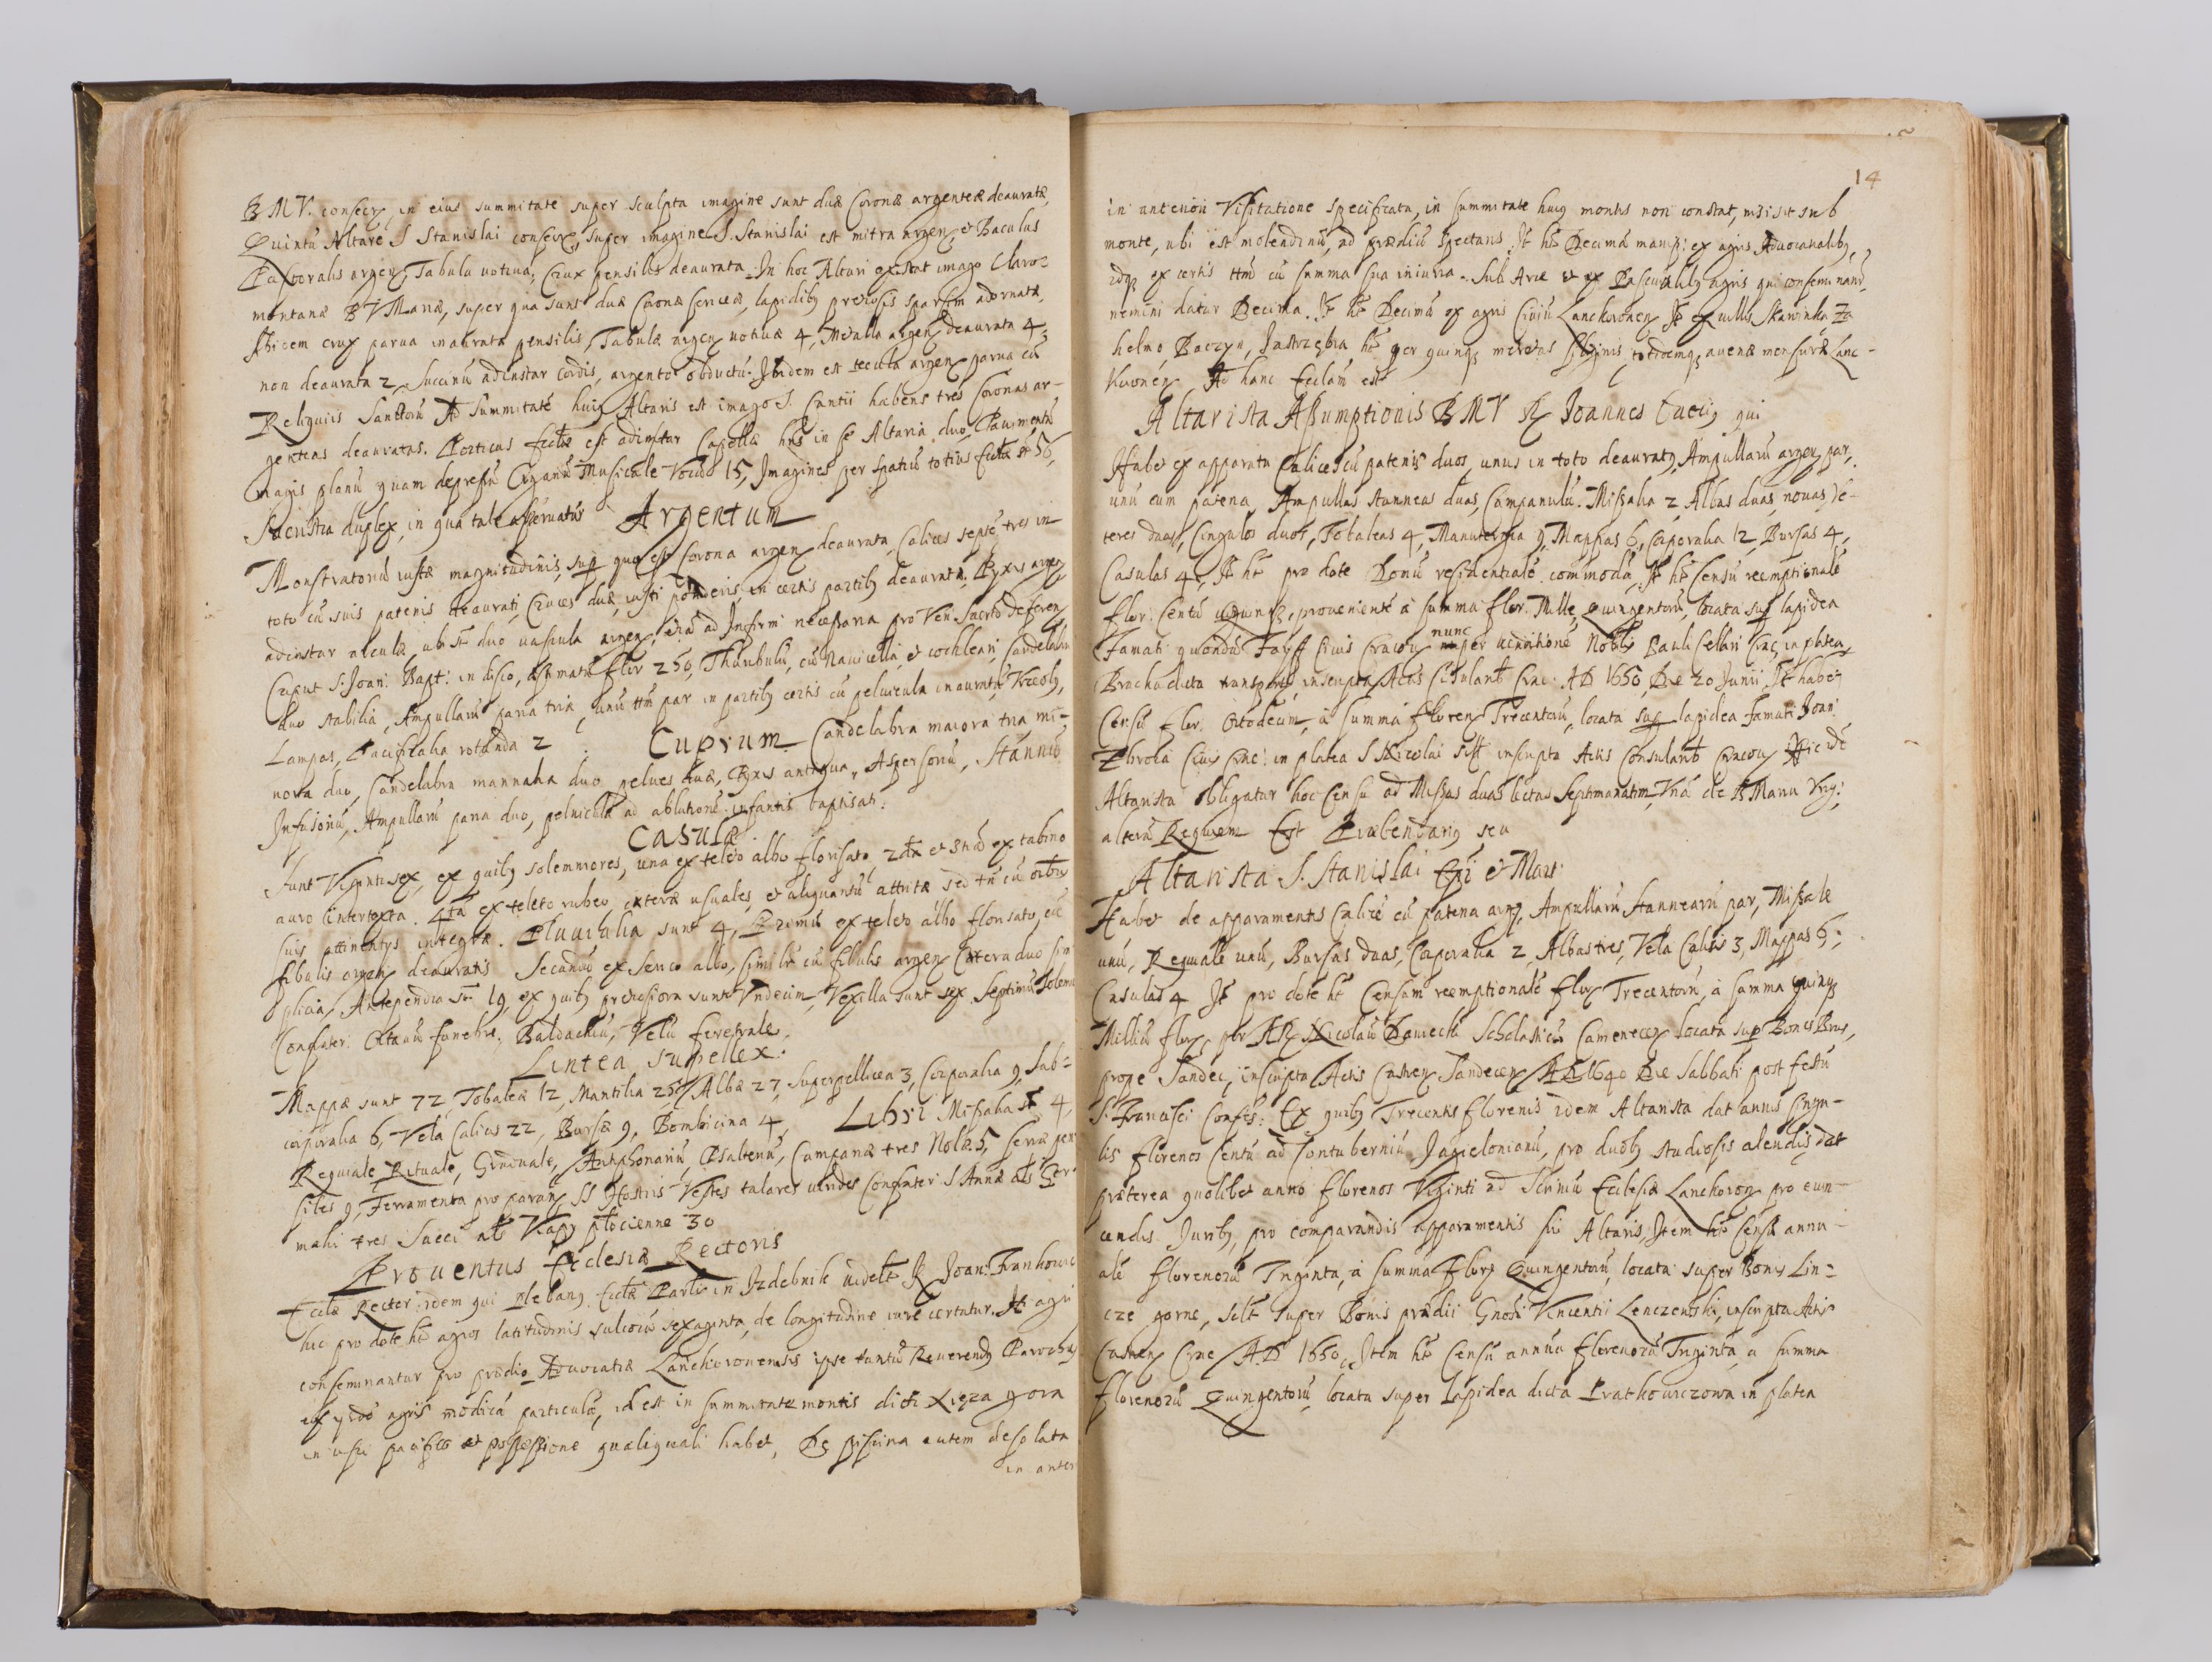 B M V. consecr, in eius summitate super sculpta imagine sunt duæ Coronæ argenteæ deauratæ,
Quintũ Altare S Stanislai consecr, super imagine S. Stanislai est mitra argen, et Baculus
Pastoralis argen, Tabula uotiua, Crux pensilis deaurata. In hoc Altari extat imago Claro-
montana B V Mariæ, super qua sunt duæ Coronæ sericeæ, lapidibq pretiosis sparsim adornatæ,
Ibidem crux parua inaurata pensilis, Tabulæ argen uotiuæ 4, Metalla argen deaurata 4,
non deaurata 2, Succinũ adinstar Cordis, argento obductũ. Ibidem est tecula argen parua cũ
Reliquiis Sanctorũ. Ad Summitatẽ huiq Altaris est imago S. Cantii habens tres Coronas ar-
genteas deauratas. Porticus Ecclæ est adinstar Capellæ hñs in se Altaria duo, Pauimentũ
magis planũ quam depressũ Organũ Musicale Vocũ 15, Imagines per spatiũ totius Eccłæ st 56,
Sacristia duplex, in qua tale asseruatũr Argentum
Monstratoriũ iustæ magnitudinis, sup quo est Corona argen deaurata, Calices septẽ tres in
toto cũ suis patenis deaurati, Cruces duæ, iusti ponderis, in certis partibq deauratæ, Pyxis argen
adinstar arculæ, ubi st duo uascula argen, ad Infirm necessaria pro Ven: Sacrto deferen,
Caput S. Joan: Bapt: in disco, æstimatũ flor 250, Thuribulũ, cũ Nauicella, et cochleari, Candelabra
duo stabilia, Ampullarũ paria tria, unũ ttm par in partibq certis cũ peluicula inauratũ, Vrceolq,
Lampas, Pacificalia rotunda 2. Cuprum Candelabra maiora tria mi-
nora duo, Candelabra manualia duo, pelues duæ, Pyxis antiqua, Aspersoriũ, Stanneũ
Infusoriũ, Ampullarũ paria duo, peluicula ad ablutionẽ infantis baptisati.
Casulæ
Sunt Viginti sex, ex quibq solemniores, una ex teleto albo florisato, 2da et 3tia ex tabino
auro intertexta. 4ta ex teleto rubeo, cæteræ usuales, et aliquantũ attritæ sed tñ cũ oĩbq
suis attinentys integræ. Pluuialia sunt 4, Primũ ex teleto albo florisato, cũ
fibulis argen deauratis Secundũ ex Serico albo, simile cũ fibulis argen Cætera duo sim
plicia, Antependia st 19, ex quibq pretiosiora sunt Vndecim, Vexilla sunt sex, Septimũ Solemn
Confrater: Octauũ funebre, Baldachinũ, Velũ ferestrale.
Lintea supellex.
Mappæ sunt 72, Tobaleæ 12, Mantilia 25, Albæ 27, Superpellicea 3, Corporalia 9, Sub-
corporalia 6, Vela Calicis 22, Bursæ 9, Bombicina 4, Libri Missalia st 4,
Requiale, Rituale, Graduale, Antiphonariũ, Psalteriũ, Campanæ tres Nolæ 5, Serræ pen
siles 9, Ferramenta pro paran SS Hostiis Vestes talares uirides Confrater: S Annæ als Ger
maki tres Sacci als Kapy płocienne 30
Prouentus Ecclesiæ Rectoris
Ecclæ Rector idem qui plebanq Ecclæ Parłis in Jzdebnik uidelt R Joan: Frankowic
hic pro dote ht agros latitudinis sulcorũ sexaginta, de longitudine iure certatur. Jt agri
conseminantur pro prædio Aduocatiæ Lanckoronensis ipse tantũ Reuerendq Parochq
ex ysdẽ agris modicã particulã, id est in summitate montis dicti Xięza gora
in usu pacifico et possessione qualiquali habet, De piscina autem desolata
in anter
14
in anteriori Visitatione specificata, in summitate huiq montis non constat, nisi sit sub
monte, ubi est molendinũ, ad prædiũ spectans. Jt ht Decimã manip: ex agris Aduocatialibq,
idq ex certis ttm cũ summa sua iniuria. Sub Arce et ex Pascualibq agris qui conseminant,
nemini datur Decima. Jt ht Decimã ex agris Ciuiũ Lanckoronen. Jt ex uillis Skawinka Za
helmo, Baczyn, Jastrzębia ht per quinq, metretas siliginis, totidemq, auenæ mensuræ Lanc-
koronen. Ad hanc Ecclam est
Altarista Assumptionis B M V R Joannes qui
Habet ex apparatu Calices cũ patenis duos, unus in toto deauratq, Ampullarũ argen par,
unũ cum patena, Ampullas stanneas duas, Campanulã. Missalia 2, Albas duas, nouas, Ve-
teres duas, Cingulos duos, Tobaleas 4, Manutergia 9, Mappas 6, Corporalia 12, Bursas 4,
Casulas 4, Jt ht pro dote Domũ residentialẽ commodã, Jt ht Censũ reemptionalẽ
flor: Centũ quinq, prouenientẽ à summa flor: Mille Quingentorũ, locata sup lapidea
Famati quondã Fayff Ciuis Cracou nunc per uenditionẽ Nobłis Pauli Cellari Crac, in platea
Bracka dicta transposita, inscripta Actis Consularib Crac: AD 1650, Die 20 Junii, Jt habet
Censũ flor: Octodecim, à summa floren Trecentorũ, locata sup lapidea famati Joan:
Zbroia Ciuis Crac: in platea S Nicolai sita inscripta Actis Consularib Cracou. Hic idẽ
Altarista obligatur hoc Censu ad Missas duas lectas Septimanatim, Vnã de B Maria Virg:
alterã Requiem Est Præbendariq seu
Altarista S. Stanislai Epi et Mart:
Habet de apparamentis Calicẽ cũ patena arg, Ampullarũ stannearũ par, Missale
unũ, Requiale unũ, Bursas duas, Corporalia 2, Albas tres, Vela Calicis 3, Mappas 6,
Casulas 4 Jt pro dote ht Censum reemptionalẽ flor Trecentorũ, à summa quinq
Milliũ flor, per AR Nicolaũ Dameckũ Scholasticũ Camenecen locata sup Bonis Brus,
prope Sandec, inscripta Actis Castren Sandecen AD 1640 Die Sabbati post festũ
S: Francisci Confes: Ex quibq Trecentis florenis idem Altarista dat annis singu-
lis florenos Centũ ad Contuberniũ Jagielonianũ, pro duobq studiosis alendis, dat
præterea quolibet anno florenos Viginti ad Scriniũ Ecclesiæ Lanckoron pro euin-
cendis Juribq, pro comparandis apparamentis sui Altaris, Jtem ht Censũ annu-
alẽ florenorũ Triginta, à summa flory Quingentorũ, locata super Bonis Lin-
cze gorne, silt super Bonis prædii Gnosi Vincentii Lenczewski, inscripta Actis
Castren Crac A.D 1650, Jtem ht Censũ annuũ florenorũ Triginta, a summa
florenorũ Quingentorũ, locata super lapidea dicta Pratkowiczowa in platea